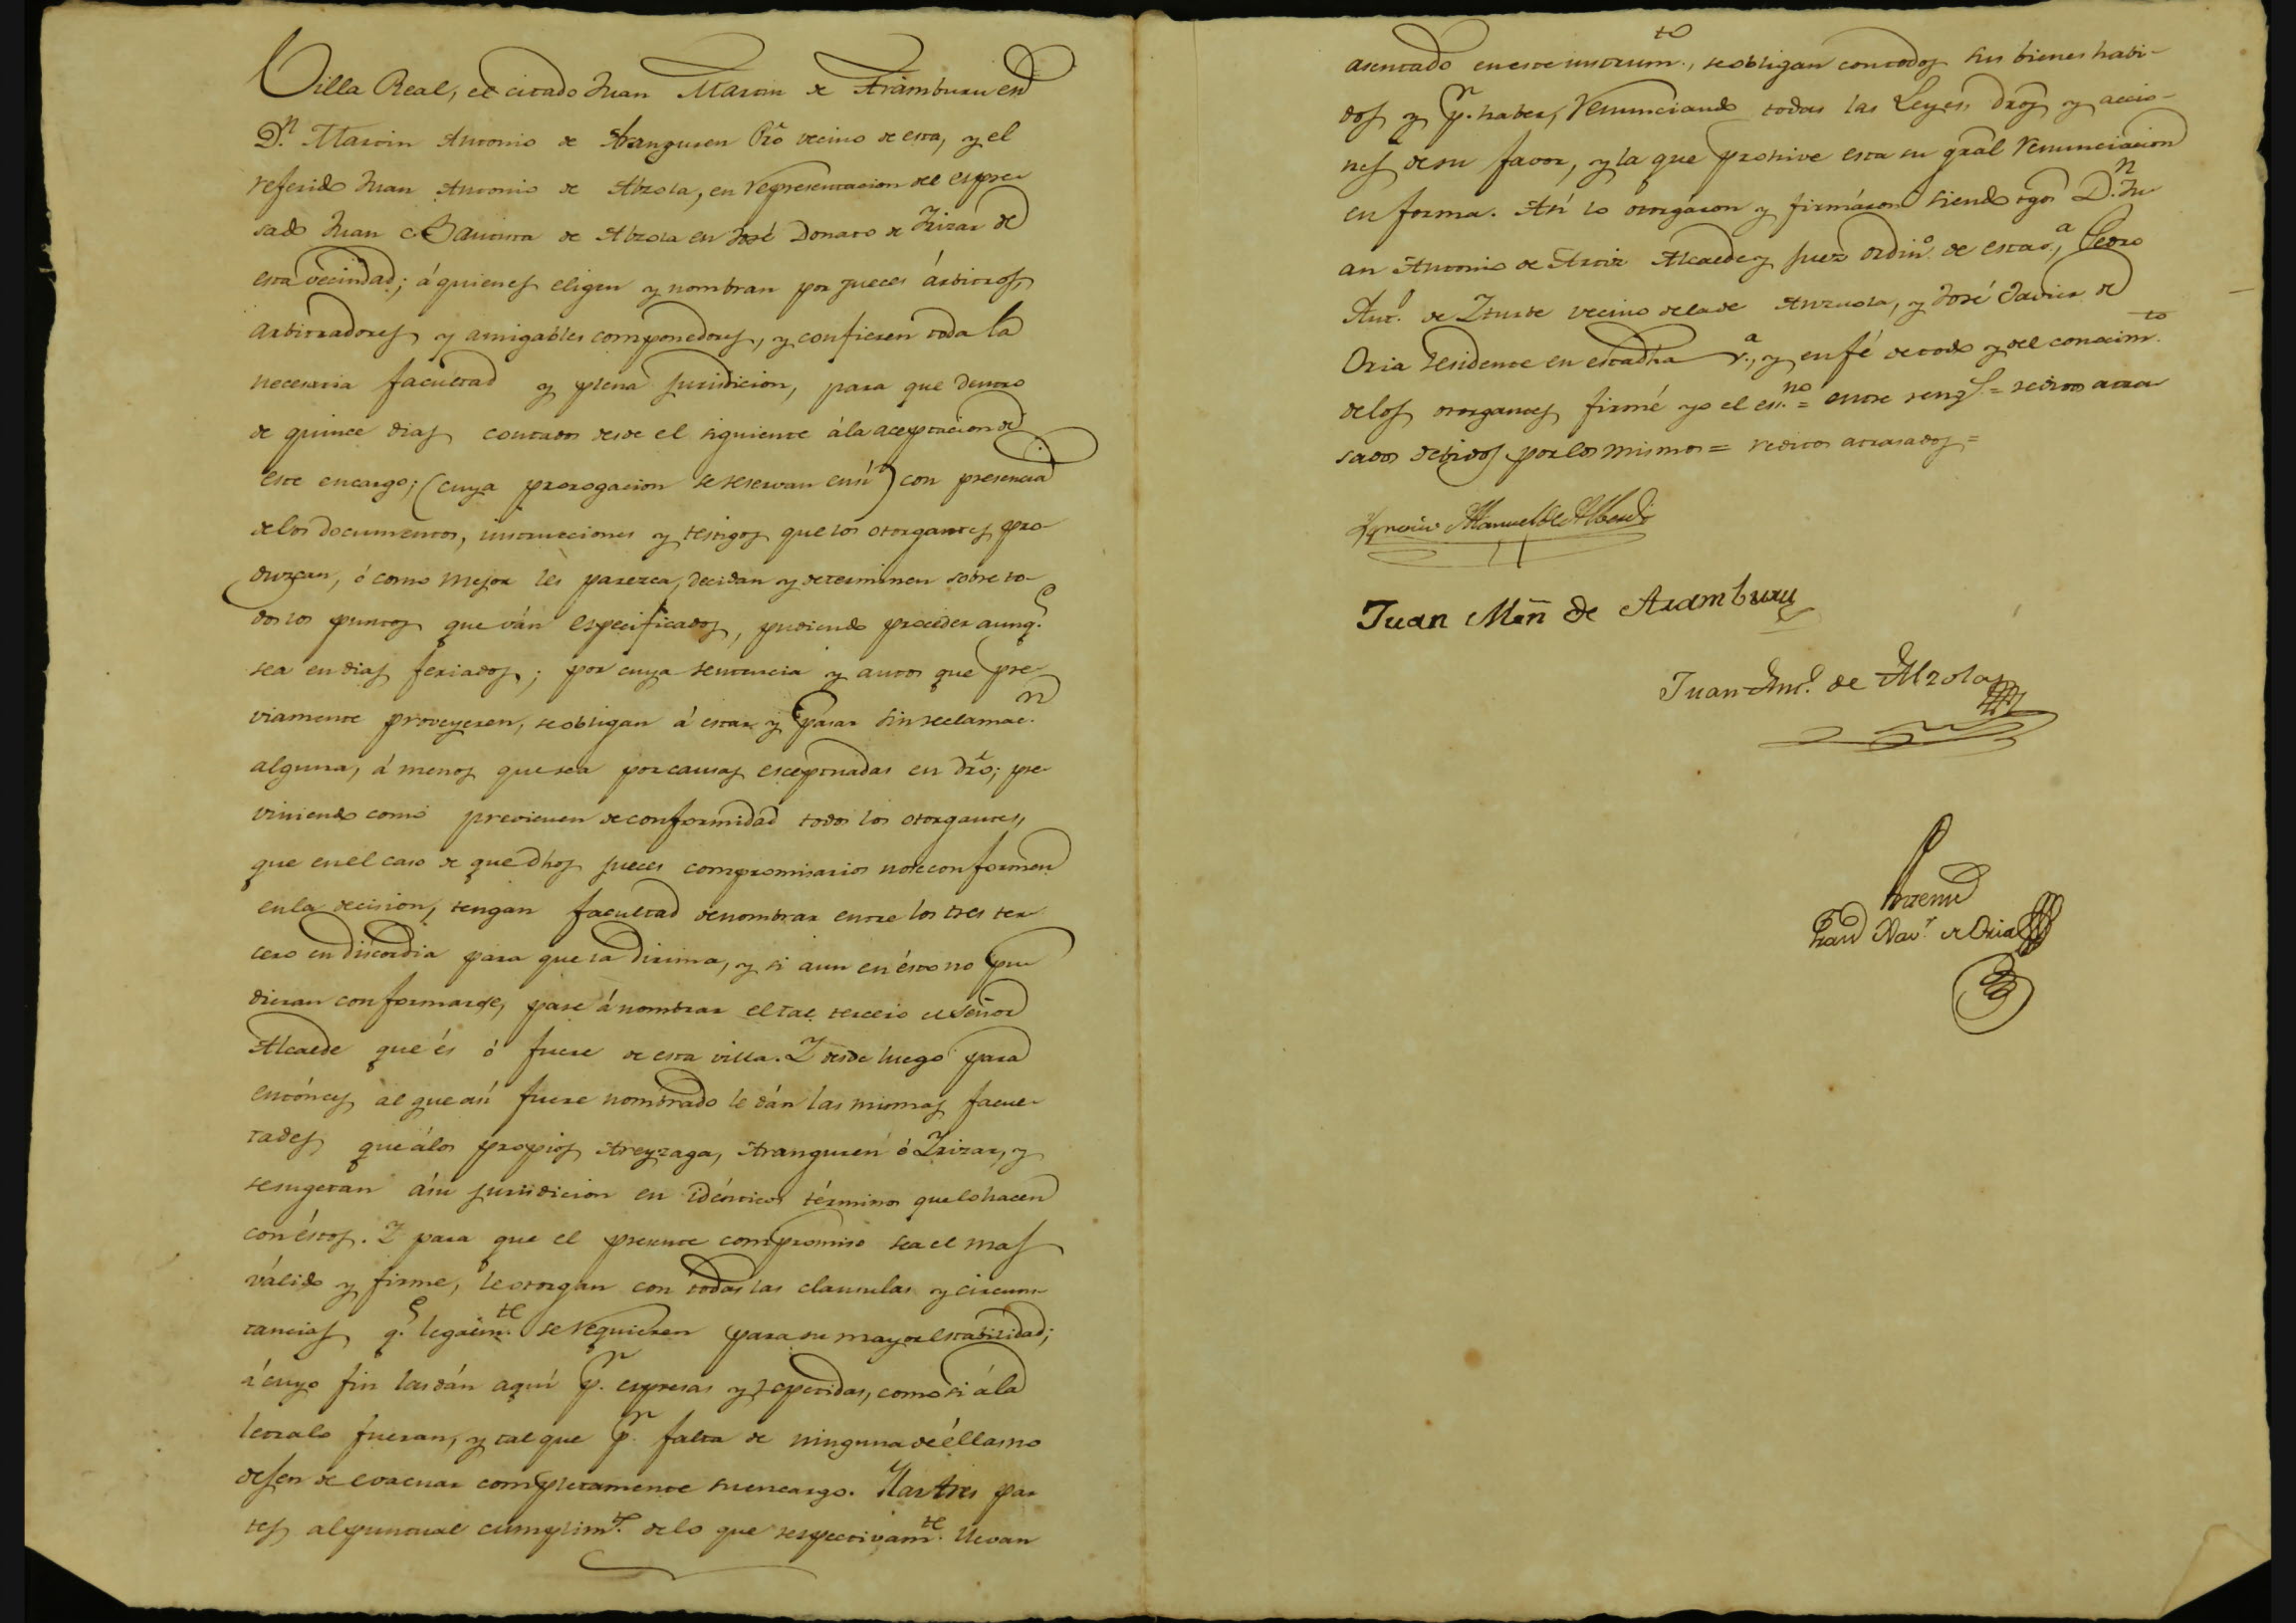 Villa Real, el citado Juan Martin de Aramburu en
D.n Martin Antonio de Aranguren Pro vecino de esta, y el
referido Juan Antonio de Alzola, en representacion del espre-
sado Juan Bautista de Alzola en José Donato de Irizar de
esta vecindad; á quienes eligen y nombran por jueces árbitros,
arbitradores y amigables componedores, y confieren toda la
necesaria facultad y plena jurisdicion, para que dentro
de quince dias contados desde el siguiente á la aceptacion de
este encargo; (cuya prorogacion se reservan en sí) con presencia
de los documentos, instrucciones y testigos que los otorgantes pro-
duzcan, ó como mejor les parezca, decidan y determinen sobre to-
dos los puntos que ván especificados, pudiendo proceder aunq.e
sea en dias feriados; por cuya sentencia y autos que pre-
viamente proveyeren, se obligan á estar y pasar sin reclamac.n
alguna, á menos que sea por causas esceptuadas en dro; pre-
viniendo como previenen de conformidad todos los otorgantes,
que en el caso de que dhos jueces compromisarios no se conformen
en la decision, tengan facultad de nombrar entre los tres ter-
cero en discordia para que la dirima, y si aun en ésto no pu-
dieran conformarse, pase á nombrar el tal tercero el Señor
Alcalde que és ó fuere de esta villa. Y desde luego para
entónces al que así fuere nombrado le dán las mismas facul-
tades que á los propios Areyzaga, Aranguren ó Irizar, y
se sugetan á su jurisdicion en idénticos términos que lo hacen
con éstos. Y para que el presente compromiso sea el mas
válido y firme, le otorgan con todas las clausulas y circuns-
tancias q.e legalm.te se requieren para su mayor estabilidad;
á cuyo fin las dán aquí p.r espresas y repetidas, como si á la
letra lo fueran, y tal que p.r falta de ninguna de éllas no
dejen de evacuar completamente su encargo. Y las tres par-
tes al puntual cumplim.to de lo que respectivam.te llevan
asentado en este instrum.to, se obligan con todos sus bienes habi-
dos y p.r haber, renunciando todas las Leyes, dros y accio-
nes de su favor, y la que prohive esta en gral renunciacion
en forma. Así lo otorgáron y firmáron siendo tgos D.n Ju-
an Antonio de Alcalde y Juez ordin.o de esta v.a, Pedro
Ant.o de Iturbe vecino de la de Anzuola, y José Javier de
Oria residente en esta dha v.a, y en fé de todo y del conocim.to
de los otorgantes firmé yo el es.no = entre reng.s = reditos atra-
sados debidos por los mismos = reditos atrasados =
Ygnacio Manuel de Alberdi
Juan Mrn de Aramburu
Juan Ant.o de Alzola
Ante mi
Xav.r de Oria